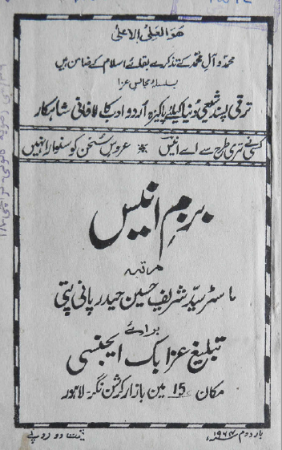 ھو العلی الاعلیٰ
محمدؐ و آلِ محمدؐ کے تذکرے بقائے اسلام کے ضامن ہیں
بسلسلۂ مجالسِ عزا
ترقی پسند شیعی دنیا کیلئے پاکیزہ اردو ادب کا لافانی شاہکار
کسی نے تری طرح سے اے انیسؔ * عروسِ سخن کو سنوارا نہیں
بزمِ انیس
مرتبہ
ماسٹر سید شریف حسین حیدر پانی پتی
برائے
تبلیغ عزا بک ایجنسی
مکان 15 مین بازار کرشن نگر۔ لاہور
بار دوم ۱۹۶۴ء
قیمت دو روپے